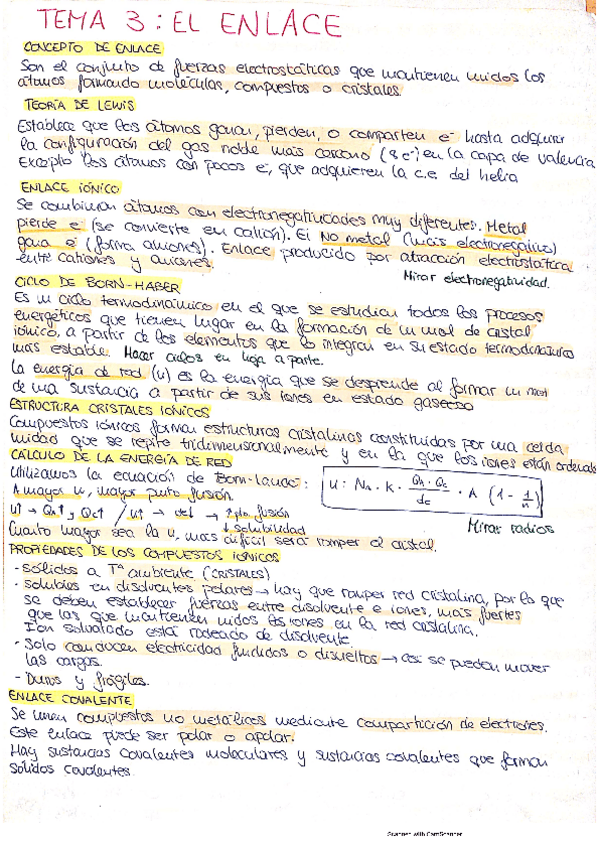 TEMA 3: EL ENLACE
CONCEPTO DE ENLACE
Son el conjunto de fuerzas electrostáticas que mantienen unidos los
átomos formando moléculas, compuestos o cristales.
TEORÍA DE LEWIS
Establece que los átomos ganan, pierden, o comparten e⁻ hasta adquirir
la configuración del gas noble más cercano (8 e⁻) en la capa de valencia
Excepto los átomos con pocos e⁻, que adquieren la c.e. del helio
ENLACE IÓNICO
Se combinan átomos con electronegatividades muy diferentes. Metal
pierde e⁻ (se convierte en catión). El No metal (más electronegativo)
gana e⁻ (forma aniones). Enlace producido por atracción electrostática
entre cationes y aniones.
Mirar electronegatividad.
CICLO DE BORN-HABER
Es un ciclo termodinámico en el que se estudian todos los procesos
energéticos que tienen lugar en la formación de un mol de cristal
iónico, a partir de los elementos que lo integran en su estado termodinámico
más estable. Hacer ciclos en hoja aparte.
La energía de red (u) es la energía que se desprende al formar un mol
de una sustancia a partir de sus iones en estado gaseoso
ESTRUCTURA CRISTALES IONICOS
Compuestos iónicos forman estructuras cristalinas constituidas por una celda
unidad que se repite tridimensionalmente y en la que los iones están ordenados
CALCULO DE LA ENERGÍA DE RED
Utilizamos la ecuación de Born-Landé: U = Na · K · Qa · Qc / dc · A (1 - 1/n)
A mayor u, mayor punto fusión.
u↑ → Qa↑ y Qc↑ / u↑ → re↓ → ↑pto. fusión
↓solubilidad
Mirar radios
Cuanto mayor sea la u, más difícil será romper el cristal.
PROPIEDADES DE LOS COMPUESTOS IONICOS
- sólidos a Tª ambiente (CRISTALES)
- solubles en disolventes polares → hay que romper red cristalina, por lo que
se deben establecer fuerzas entre disolvente e iones, más fuertes
que las que mantienen unidos los iones en la red cristalina.
Ion solvatado está rodeado de disolvente.
- Solo conducen electricidad fundidos o disueltos → así se pueden mover
las cargas.
- Duros y frágiles.
ENLACE COVALENTE
Se unen compuestos no metálicos mediante compartición de electrones.
Este enlace puede ser polar o apolar.
Hay sustancias covalentes moleculares y sustancias covalentes que forman
sólidos covalentes.
Scanned with CamScanner